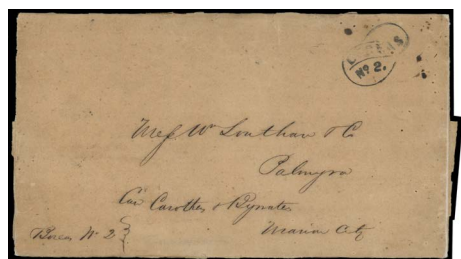 No 2.
Mess Wm Louthan & Co
Palmyra
Care Carothes & Bynates
Marion City
Boreas No 2